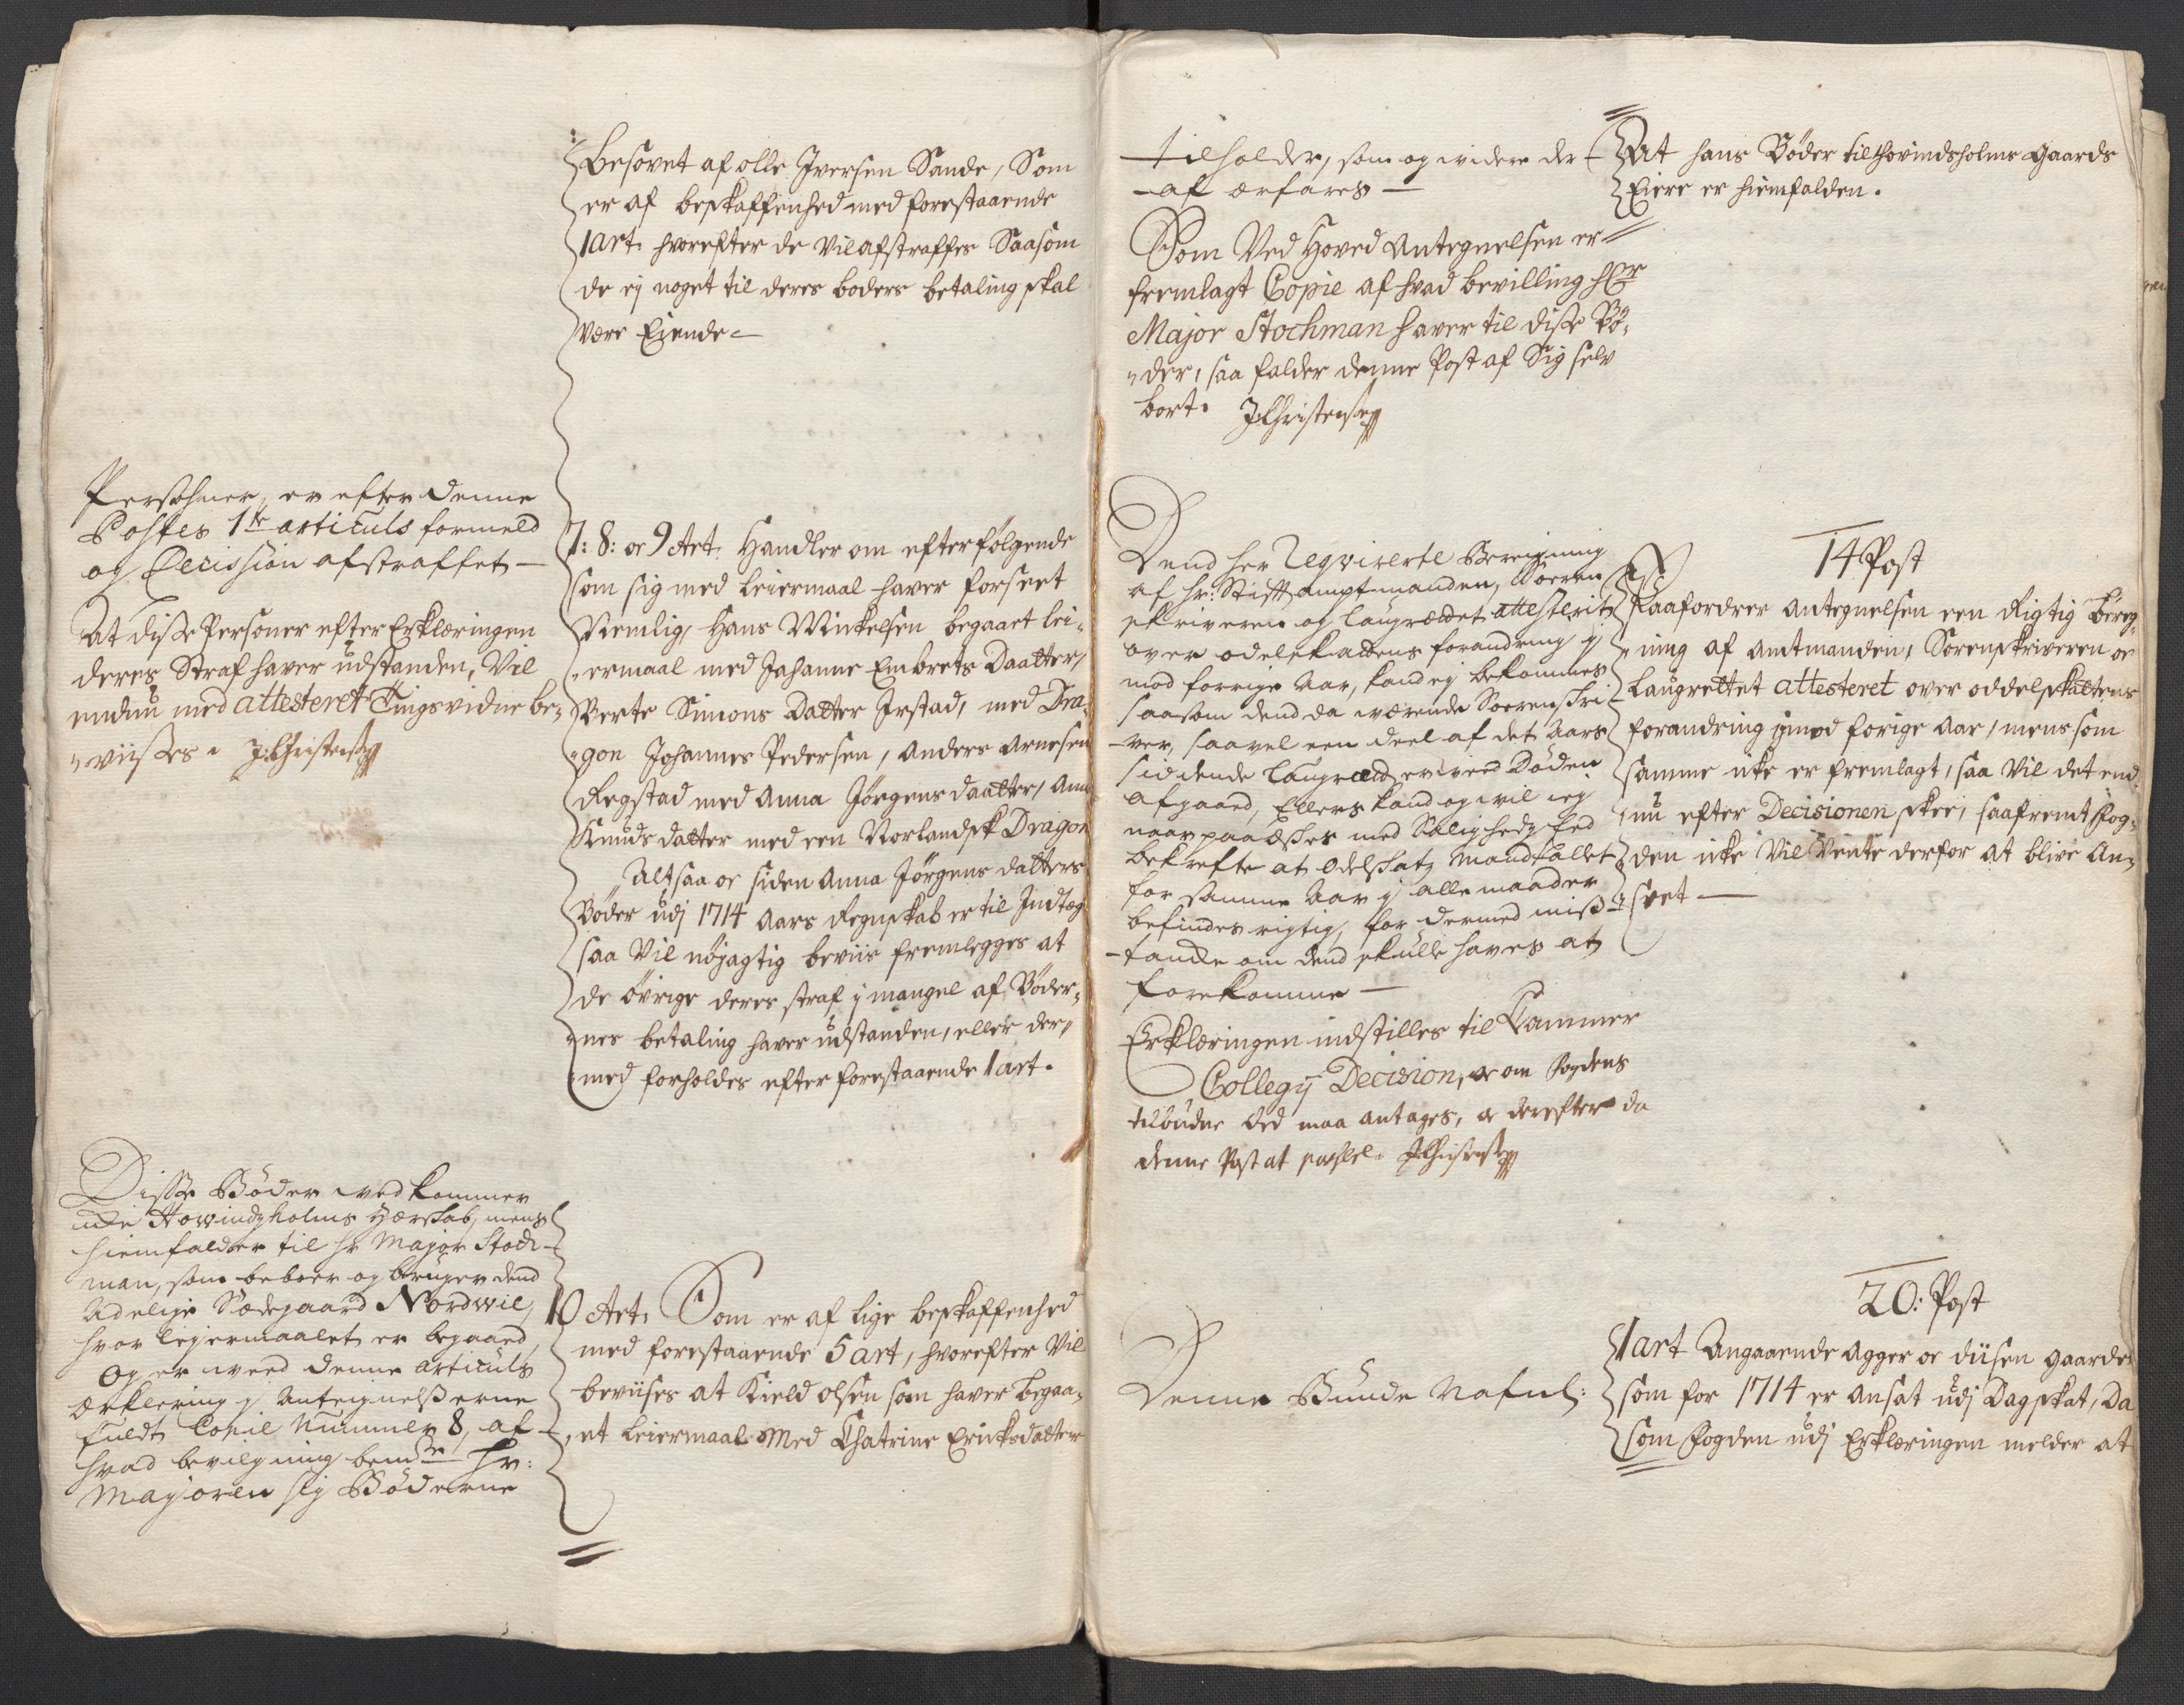 Besovet af olle Iversen Sande, Som
er af beskaffenhed med forestaaende
1 art. hvorefter de Vil afstraffes Saasom
de ej noget til deres boders betaling skal
være Eiende —
Persohner, er efter denne
Postes 1te articuls formeld
og Decission afstraffet —
At disse Personer efter Erklæringen
deres Straf haver udstanden, Vil
endnu med attesteret Tingsvidne be-
viisses. J: Christensen
7: 8: oc 9 Art. Handler om efterfølgende
som sig med Leiermaal haver forseet
Nemlig, Hans Minkelsen begaaet lei-
ermaal med Johanne Embrets Daatter,
Berte Simons Datter Irstad, med Dra-
gon Johannes Pedersen, Anders Arnesen
Regstad med Anna Jørgens daatter, Anne
Knuds datter med een Norlandsk Dragon
Altsaa oc siden Anna Jørgens datters
Bøder udj 1714 Aars Regnskab er til Indtægt
saa Vil nøjagtig beviis fremlegges at
de øvrige deres straf j mangel af Bøder-
nes betaling haver udstanden, eller der-
med forholdes efter forestaaende 1 art.
Disse Bøder ved kommer
icke Howindzholms Herskab, mens
hiemfalder til hr Major Stoch-
man, som beboer og bruger dend
Adelige Sædegaard Nordwie,
hvor lejermaalet er begaaed,
og er weed denne articuls
Erklering j Anteignelsserne
fuldt Copie Nummer 8, af
hvad bevilgning bemte Hr:
Majoren sig Bøderne
10 Art. Som er af lige beskaffenhed
med forestaaende 5 art, hvorefter Vil
beviises at Kield olsen som haver begaa-
et Leiermaal Med Chatrine Ericksdatter
tilholder, som og widere der
af erfares —
At hans Bøder til Hovindsholms Gaards
Eiere er hiemfalden.
Som Ved Hoved Antegnelsen er
fremlagt Copie af hvad bevilling Hr
Major Stochman haver til disse Bø-
der, saa falder denne Post af Sig selv
bort. J: Christensen
Dend her Reqvirerte Bereigning
af hr: Stiftamptmanden, Soeren
skriveren og Laugrettet attesterit
over odelskattens forandring j
mod forrige Aar, kand ej bekommes
saasom dend da wærende Soerenskri-
ver, saavel een deel af det Aars
siddende Laugræt er ved Døden
afgaaed, Ellers kand og wil ieg
naar paaæskes med Saligheds Eed
bekrefte at Odelskatz Mandtallet
for samme Aar j alle maader
befindes rigtig, for dermed miss-
tancke om dend skulle haves at
forekomme —
Erklæringen indstilles til Cammer
Collegij Decision, oc om Fogdens
tilbudne Eed maa antages, oc derefter da
denne Post at passere. J: Christensen
14 Post
Paafordrer Antegnelsen een Rigtig Bereg-
ning af Amtmanden, Sorenskriveren oc
Laugrettet attesteret over oddelskattens
forandring jmod forige Aar, mens som
samme icke er fremlagt, saa Vil det end-
nu efter Decisionen skee, saafremt Fog-
den icke Vil Vente derfor at blive An-
seet —
20: Post
1 art Angaaende Agger oc Diisen gaarde
som for 1714 er ansat udj Dagskat, Da
som Fogden udj Erklæringen melder at
Denne Bunde Nafnl: